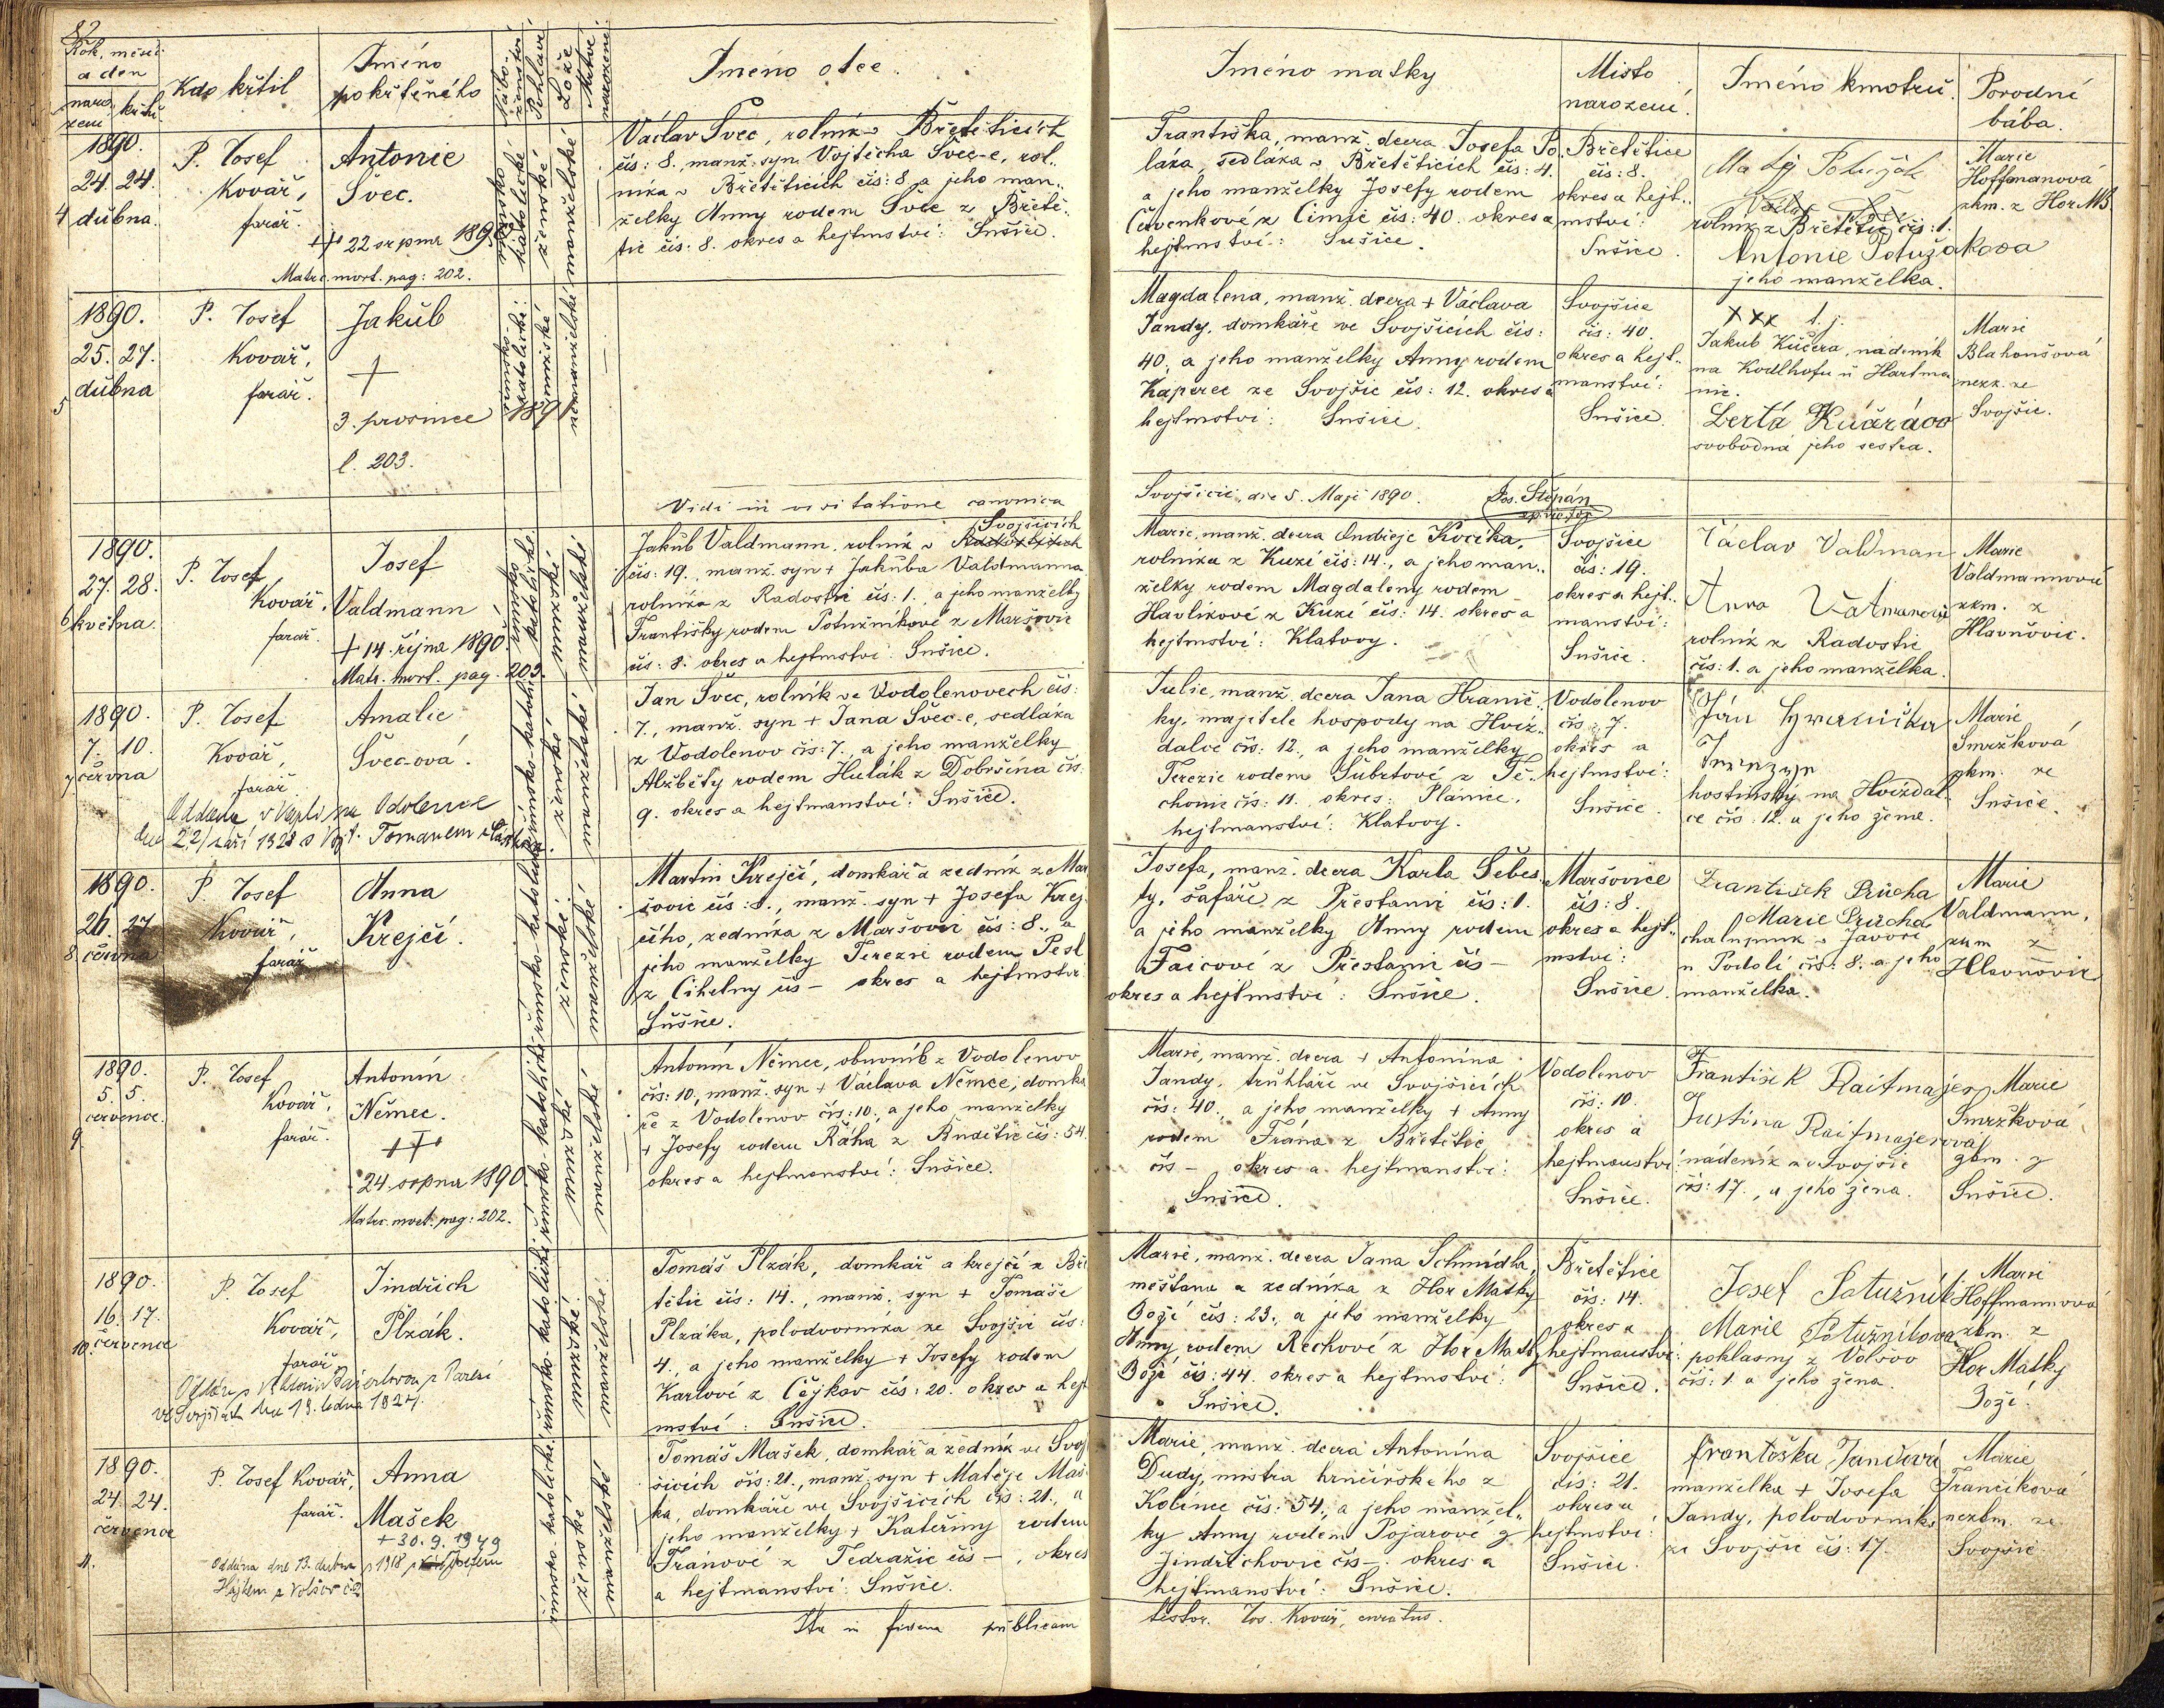 82
Rok, měsíc
a den
naro-
zení
křtu
Kdo křtil
Jméno
pokřtěného
Nábo-
ženství
Pohlaví
Lože
Mrtvě
narozené
Jméno otce.
Jméno matky
Místo
narození.
Jméno kmotrů.
Porodní
bába.
1890.
24. 24.
4 dubna.
P. Josef
Kovář,
farář.
Antonie
Švec.
22 srpna 1890
Matr. mort. pag: 202.
římsko
katolické
ženské
manželské
Václav Švec, rolník v Břetěticích
čís: 8. manž. syn Vojtěcha Švec-e, rol-
níka v Břetěticích čís: 8 a jeho man-
želky Anny rodem Švec z Břetě-
tic čís: 8. okres a hejtmství: Sušice.
Františka, manž. dcera Josefa Po-
láka, sedláka v Břetěticích čís: 4.
a jeho manželky Josefy rodem
Červenkové z Čimic čís: 40. okres a
hejtmství: Sušice.
Břetětice
čís: 8.
okres a hejt-
mství:
Sušice.
Matěj
rolník z Břetětic čís: 1.
Antonie Potužákova
jeho manželka.
Marie
Hoffmanová
zkm. z Hor MB
1890.
25. 27.
5 dubna
P. Josef
Kovář,
farář.
Jakub
+
3. prosince 1891
l. 203.
římsko-
katolické:
mužské
nemanželské
Magdalena, manž. dcera + Václava
Jandy, domkáře ve Svojšicích čís:
40., a jeho manželky Anny rodem
Kaperec ze Svojšic čís: 12. okres a
hejtmství: Sušice.
Svojšice
čís: 40.
okres a hejt-
manství:
Sušice.
xxx t. j.
Jakub Kučera, nádeník
na Kodlhofu u Hartma
nic.
Berta
svobodná jeho sestra.
Marie
Blahoušová
nezk. ze
Svojšic.
Vidi in visitatione canonica
Svojšicii, die 5. Maji 1890. Jos. Štěpán
1890.
27. 28.
6 května.
P. Josef
Kovář,
farář.
Josef
Valdmann
+ 14. října 1890.
Matr. mort. pag. 203.
římsko
katolické
mužské
manželské
Svojšicích
Jakub Valdmann, rolník v
čís: 19., manž. syn + Jakuba Valdmanna
rolníka z Radostic čís: 1., a jeho manželky
Františky rodem Potužníkové z Maršovic
čís: 8. okres a hejtmství: Sušice.
Marie, manž. dcera Ondřeje Kocíka,
rolníka z Kuzí čís: 14., a jeho man-
želky rodem Magdaleny rodem
Havlíkové z Kuzí čís: 14. okres a
hejtmství: Klatovy.
Svojšice
čís: 19.
okres a hejt-
manství:
Sušice.
Václav Valdman
Anna
rolník z Radostic
čís: 1. a jeho manželka.
Marie
Valdmannová
zkm. z
Hlavňovic.
1890.
7. 10.
7 června
P. Josef
Kovář,
farář.
Amalie
Švec-ová.
římsko-katolické
ženské
manželské
Jan Švec, rolník ve Vodolenovech čís:
7., manž. syn + Jana Švec-e, sedláka
z Vodolenov čís: 7., a jeho manželky
Alžběty rodem Hulák z Dobršína čís:
9. okres a hejtmanství: Sušice.
Julie, manž. dcera Jana Hranič-
ky, majitele hospody na Hvíz-
dalce čís: 12., a jeho manželky
Terezie rodem Šubrtové z Tě-
chonic čís: 11. okres: Plánice,
hejtmanství: Klatovy.
Vodolenov
čís: 7.
okres a
hejtmství:
Sušice.
hostinský na Hvízdal-
ce čís: 12. a jeho žena.
Marie
Smržková
zkm. ze
Sušice.
1890.
26. 27
8. června
P. Josef
Kovář,
farář
Anna
Krejčí.
římsko-katolické
ženské
manželské
Martin Krejčí, domkář a zedník z Mar
šovic čís: 8., manž. syn + Josefa Krej-
čího, zedníka z Maršovic čís: 8., a
jeho manželky Terezie rodem Pešl
z Cihelny čís – okres a hejtmství
Sušice.
Josefa, manž. dcera Karla Šebes-
ty, šafáře z Přestanic čís: 1.
a jeho manželky Anny rodem
Faicové z Přestanic čís –
okres a hejtmství: Sušice.
Maršovice
čís: 8.
okres a hejt-
mství:
Sušice.
František Průcha
Marie Průcha
chalupník v Javoří
u Podolí čís: 8. a jeho
manželka.
Marie
Valdmann,
zkm z
Hlavňovic
1890.
5. 5.
července.
9
P. Josef
Kovář,
farář.
Antonín
Němec.
24. srpna 1890.
Matr. mort. pag: 202.
římsko-katolické
mužské
manželské
Antonín Němec, obuvník z Vodolenov
čís: 10, manž. syn + Václava Němce, domká
ře z Vodolenov čís: 10., a jeho manželky
+ Josefy rodem Ráha z Budětic čís: 54.
okres a hejtmanství: Sušice.
Marie, manž. dcera + Antonína
Jandy, truhláře ve Svojšicích
čís: 40., a jeho manželky + Anny
rodem Frána z Břetětic
čís – okres a hejtmanství:
Sušice.
Vodolenov
čís: 10.
okres a
hejtmanství:
Sušice.
František Raitmajer
Justina Raitmajerová
nádeník ze Svojšic
čís: 17., a jeho žena.
Marie
Smržková
zkm. z
Sušice.
1890.
16. 17.
10. července
P. Josef
Kovář,
farář
Jindřich
Plzák.
římsko-katolické
mužské
manželské
Tomáš Plzák, domkář a krejčí z Bře
tětic čís: 14., manž. syn + Tomáše
Plzáka, polodvorníka ze Svojšic čís:
4., a jeho manželky + Josefy rodem
Karlové z Čejkov čís: 20. okres a hejt
mství: Sušice.
Marie, manž. dcera Jana Schmidha,
měšťana a zedníka z Hor Matky
Boží čís: 23., a jeho manželky
Anny rodem Rechové z Hor Matky
Boží čís: 44. okres a hejtmství:
Sušice.
Břetětice
čís: 14.
okres a
hejtmanství:
Sušice.
Josef Potužník
Marie Potužníkova
poklasný z Volšov
čís: 1. a jeho žena.
Marie
Hoffmannová
zkm. z
Hor Matky
Boží.
1890.
24. 24.
července
11.
P. Josef Kovář,
farář.
Anna
Mašek
+ 30. 9. 1949
Oddána dne 13. dubna 1918 s Josefem
Hájkem z Volšov č. 2
římsko-katolické
ženské
manželské
Tomáš Mašek, domkář a zedník ve Svoj
šicích čís: 21., manž. syn + Matěje Maš-
ka, domkáře ve Svojšicích čís: 21., a
jeho manželky + Kateřiny rodem
Fránové z Tedražic čís – , okres
a hejtmanství: Sušice.
Marie, manž. dcera Antonína
Dudy, mistra hrnčířského z
Kolince čís: 54., a jeho manžel-
ky Anny rodem Pojarové z
Jindřichovic čís –. okres a
hejtmanství: Sušice.
Svojšice
čís: 21.
okres a
hejtmství:
Sušice.
Františka Jandová
manželka + Josefa
Jandy, polodvorníka
ze Svojšic čís: 17.
Marie
Frančíková
nezkm. ze
Svojšic.
Ita in fidem publicam
testor. Jos. Kovář, curatus.